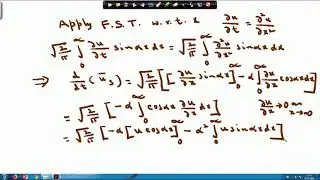 Apply F.S.T. w.r.t. x ∂u/∂t = ∂²u/∂x²
√(2/π) ∫₀^∞ ∂u/∂t sin αx dx = √(2/π) ∫₀^∞ ∂²u/∂x² sin αx dx
⇒ d/dt (ū_s) = √(2/π) [[∂u/∂x sin αx]₀^∞ - α ∫₀^∞ ∂u/∂x cos αx dx]
= √(2/π) [-α ∫₀^∞ cos αx ∂u/∂x dx] ∂u/∂x → 0 as x→∞
= √(2/π) [-α [u cos αx]₀^∞ - α² ∫₀^∞ u sin αx dx]